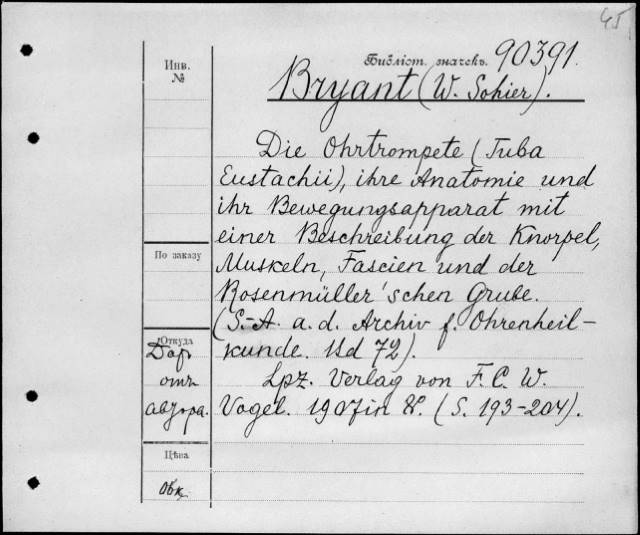 45
Инв.
№
Библіот. значекъ. 90391.
Bryant (W. Sohier).
Die Ohrtrompete (Tuba
Eustachii), ihre Anatomie und
ihr Bewegungsapparat mit
einer Beschreibung der Knorpel,
По заказу
Muskeln, Fascien und der
Rosenmüller'schen Grube.
(S.-A. a. d. Archiv f. Ohrenheil-
Откуда
Даръ
kunde. Bd 72).
отъ
Lpz. Verlag von F. C. W.
автора.
Vogel. 1907 in 8º. (S. 193-204).
Цѣна
Обк